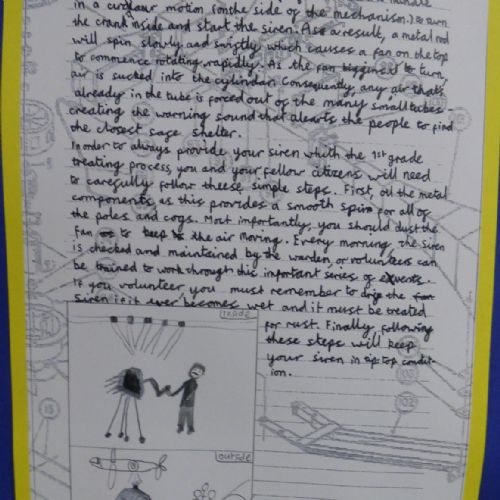 in a curcluar motion (on the side of the mechanism.) to turn
the crank inside and start the siren. As a result, a metal rod
will spin slowly and swiftly which causes a fan on the top
to commence rotating rapidly. As the fan to turn,
air is sucked into the cylindar. Consequently, any air that's
already in the tube is forced out of the many small tubes -
creating the warning sound that alearts the people to find
the closest sage shelter.
In order to always provide your siren whith the 1st grade
treating process you and your fellow citizens will need
to carefully follow theese simple steps. First, oil the metal
components as this provides a smooth spin for all of
the poles and cogs. Most importantly, you should dust the
fan to keep the air moving. Every morning the siren
is checked and maintained by the warden, or volunteers can
be trained to work through this important series of events.
If you volunteer you must remember to the fan
siren if it ever becomes wet and it must be treated
for rust. Finally following
these steps will keep
your siren in tip top condit-
ion.
inside
outside
15
102